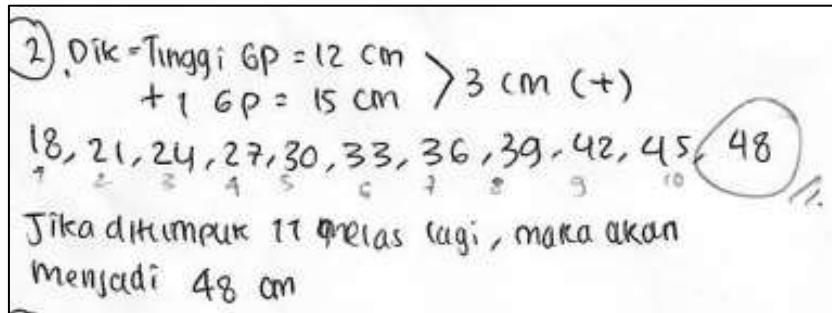 2) Dik = Tinggi Gp = 12 cm
+ 1 Gp = 15 cm > 3 cm (+)
18, 21, 24, 27, 30, 33, 36, 39, 42, 45, 48
1 2 3 4 5 6 7 8 9 10
Jika ditumpuk 11 gelas lagi, maka akan
menjadi 48 cm